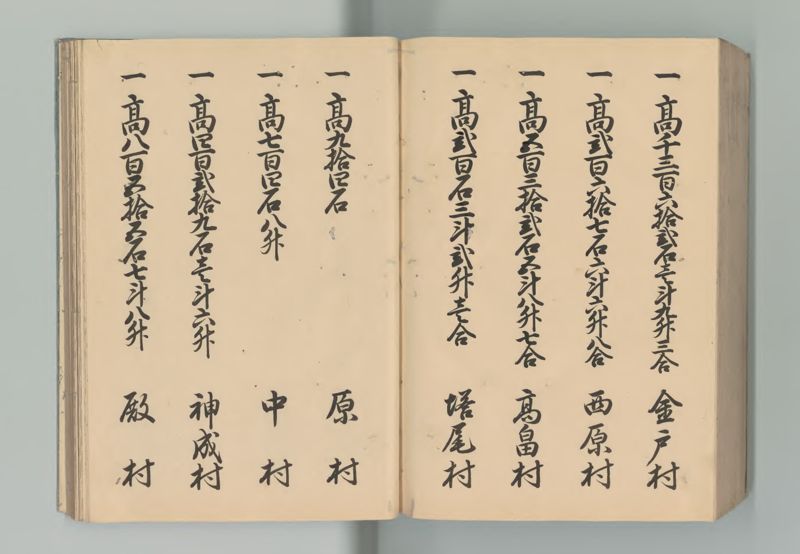 一 高千三百六拾弐石壱斗九升三合 金戸村
一 高弐百六拾七石六斗六升八合 西原村
一 高五百三拾弐石五斗八升七合 高畠村
一 高弐百石三斗弐升壱合 塔尾村
一 高九拾四石 原村
一 高七百四石八升 中村
一 高四百弐拾九石壱斗六升 神成村
一 高八百五拾五石七斗八升 殿村